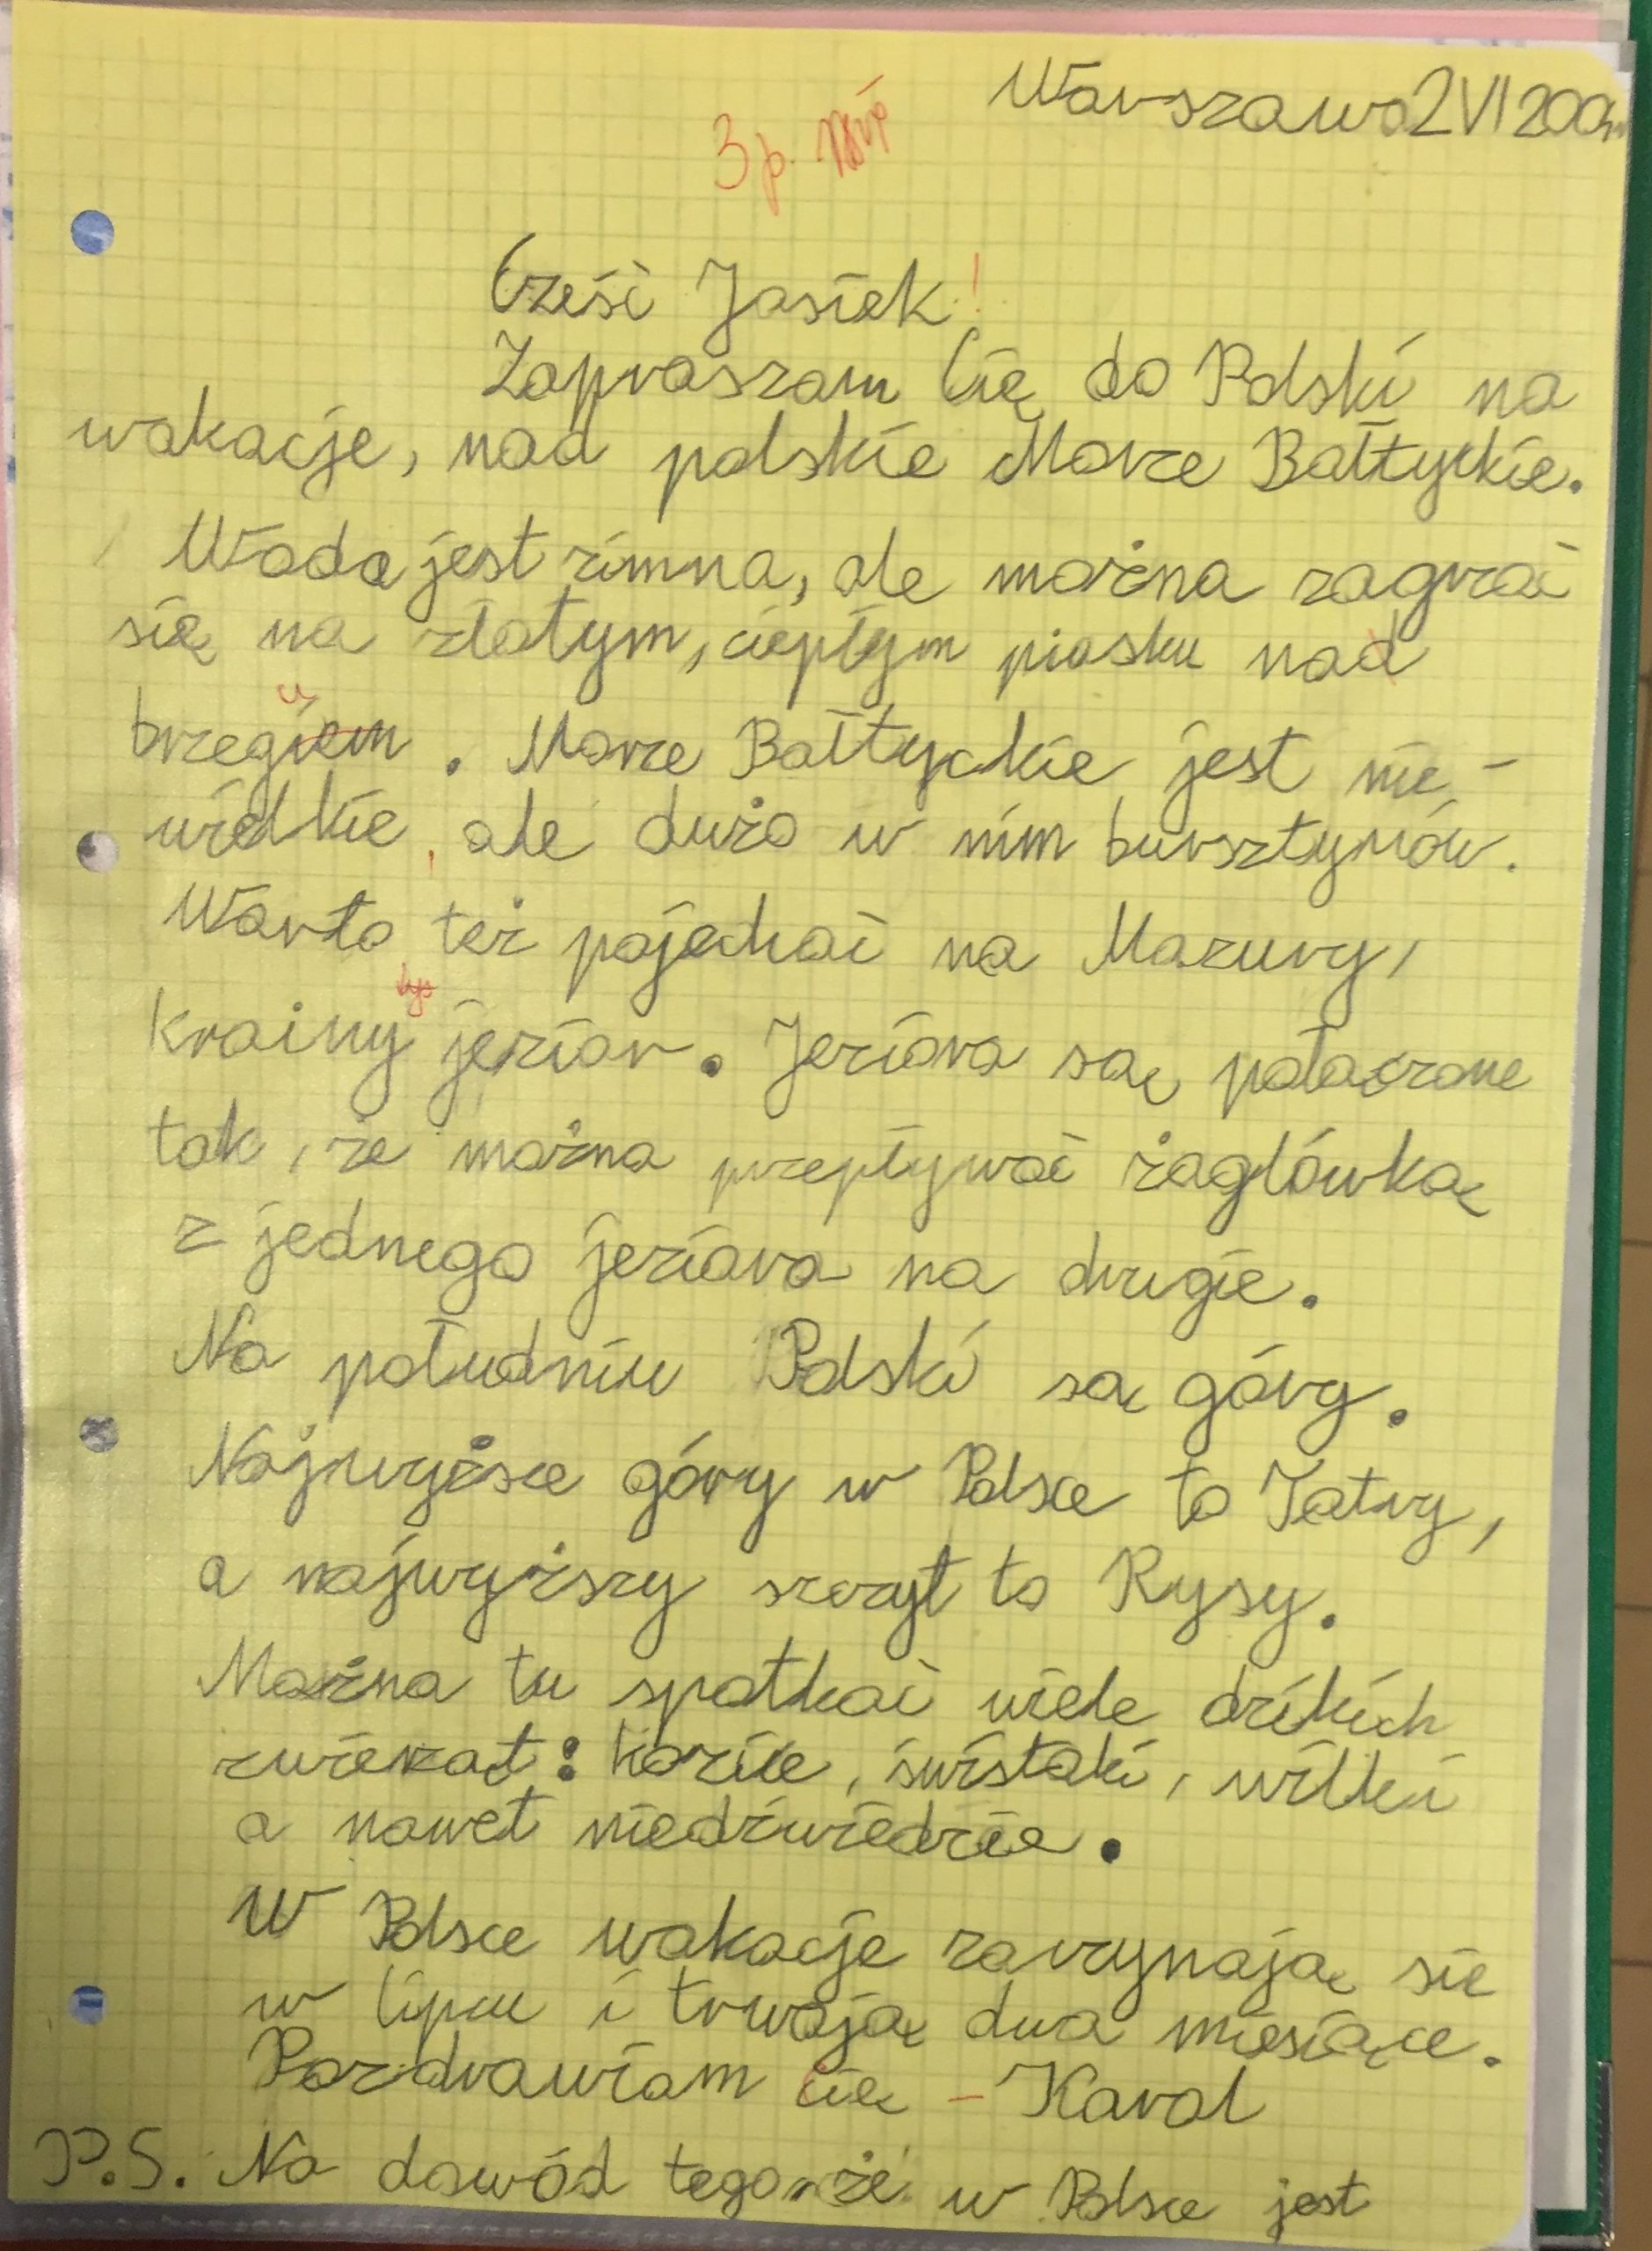 Warszawa 2 VI 200
3 p.
Cześć Jasiek!
Zapraszam Cię do Polski na
wakacje, nad polskie Morze Bałtyckie.
Woda jest zimna, ale można zagrać
się na złotym, ciepłym piasku nad
brzegiem. Morze Bałtyckie jest nie-
wielkie, ale dużo w nim bursztynów.
Warto też pojechać na Mazury,
krainy jezior. Jeziora są połączone
tak, że można przepływać żaglówką
z jednego jeziora na drugie.
Na południu Polski są góry.
Najwyższe góry w Polsce to Tatry,
a najwyższy szczyt to Rysy.
Można tu spotkać wiele dzikich
zwierząt: kozice, świstaki, wilki
a nawet niedźwiedzie.
W Polsce wakacje zaczynają się
w lipcu i trwają dwa miesiące.
Pozdrawiam cię - Karol
P.S. Na dowód tego, że w Polsce jest